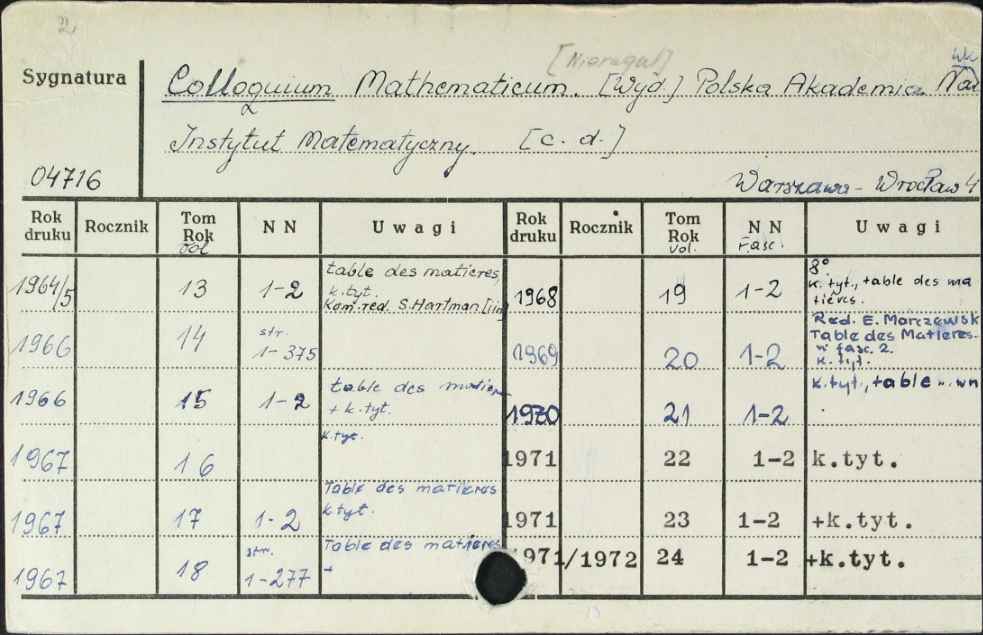 2
[Nieregul]
wk
Sygnatura
Colloquium Mathematicum. [Wyd.] Polska Akademia Nau
Instytut Matematyczny. [c. d.]
04716
Warszawa - Wrocław 4
Rok druku Rocznik Tom Rok vol N N Uwagi Rok druku Rocznik Tom Rok vol. N N Fasc. Uwagi
1964/5 13 1-2 table des matieres, k.tyt. Kom. red. S. Hartman [i in] 1968 19 1-2 8° k. tyt., table des matières.
1966 14 str. 1-375 1969 20 1-2 Red. E. Marczewsk Table des Matieres. w fasc. 2. k. tyt.
1966 15 1-2 table des matier + k. tyt. 1970 21 1-2 k. tyt., table
1967 16 k tyt. 1971 22 1-2 k.tyt.
1967 17 1-2 Table des matieres k tyt. 1971 23 1-2 +k.tyt.
1967 18 str. 1-277 Table des matieres + 1971/1972 24 1-2 +k.tyt.